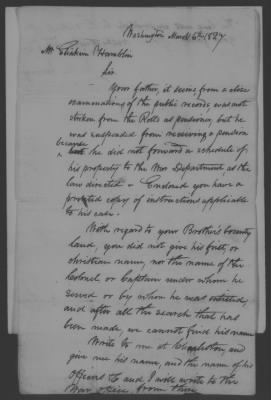 Washington March 5th 1827
Mr. Eliakim Hamblin
Sir
Your father, it seems from a close
examination of the public records, was not
stricken from the Rolls as pensioner, but he
was suspended from receiving a pension
because
he did not forward a schedule of
his property to the War Department as the
law directed. Enclosed you have a
printed copy of instructions applicable
to his case.
With regard to your Brother's bounty
land, you did not give his first, or
christian name, nor the name of the
Colonel or Captain under whom he
served or by whom he was enlisted,
and after all the search that has
been made, we cannot find his name
Write to me at Charleston, and
give me his name, and the name of his
officers & and I will write to the
War office from there